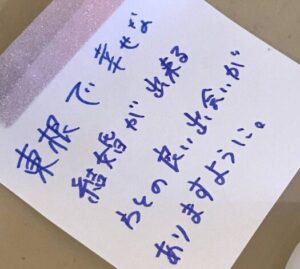 東根で幸せな
結婚が出来る
ひとの良い出会いが
ありますように。